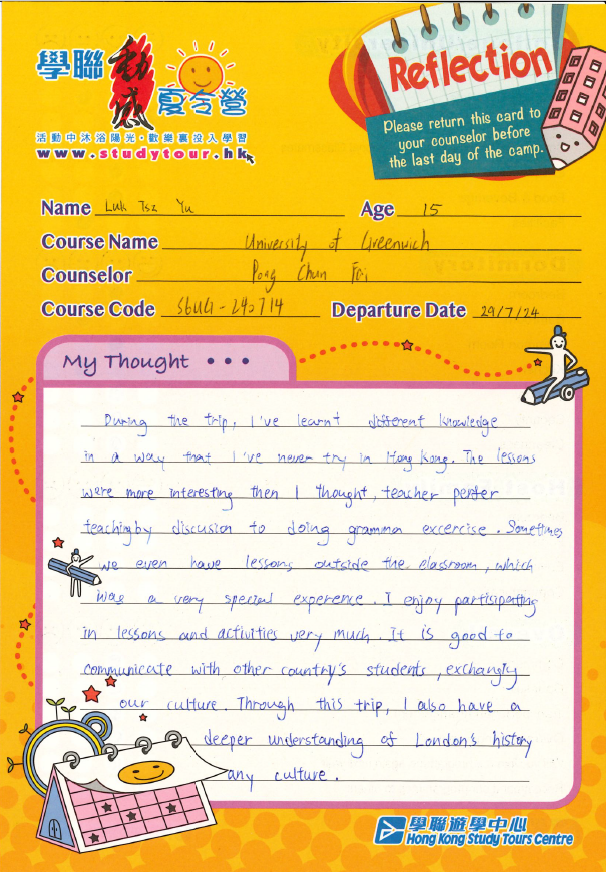 學聯 動感 夏令營
活動中沐浴陽光·歡樂裏投入學習
www.studytour.hk
Reflection
Please return this card to
your counselor before
the last day of the camp.
Name Luk Tsz Yu Age 15
Course Name University of Greenwich
Counselor Pong Chun Fai
Course Code SGUG-240714 Departure Date 29/7/24
My Thought • • •
During the trip, I've learnt different knowledge
in a way that I've never try in Hong Kong. The lessons
were more interesting then I thought, teacher perfer
teaching by discusion to doing gramma excercise. Sometimes
we even have lessons outside the classroom, which
was a very special experence. I enjoy participating
in lessons and activities very much. It is good to
communicate with other country's students, exchangiy
our culture. Through this trip, I also have a
deeper understanding of London's history
any culture.
學聯遊學中心
Hong Kong Study Tours Centre